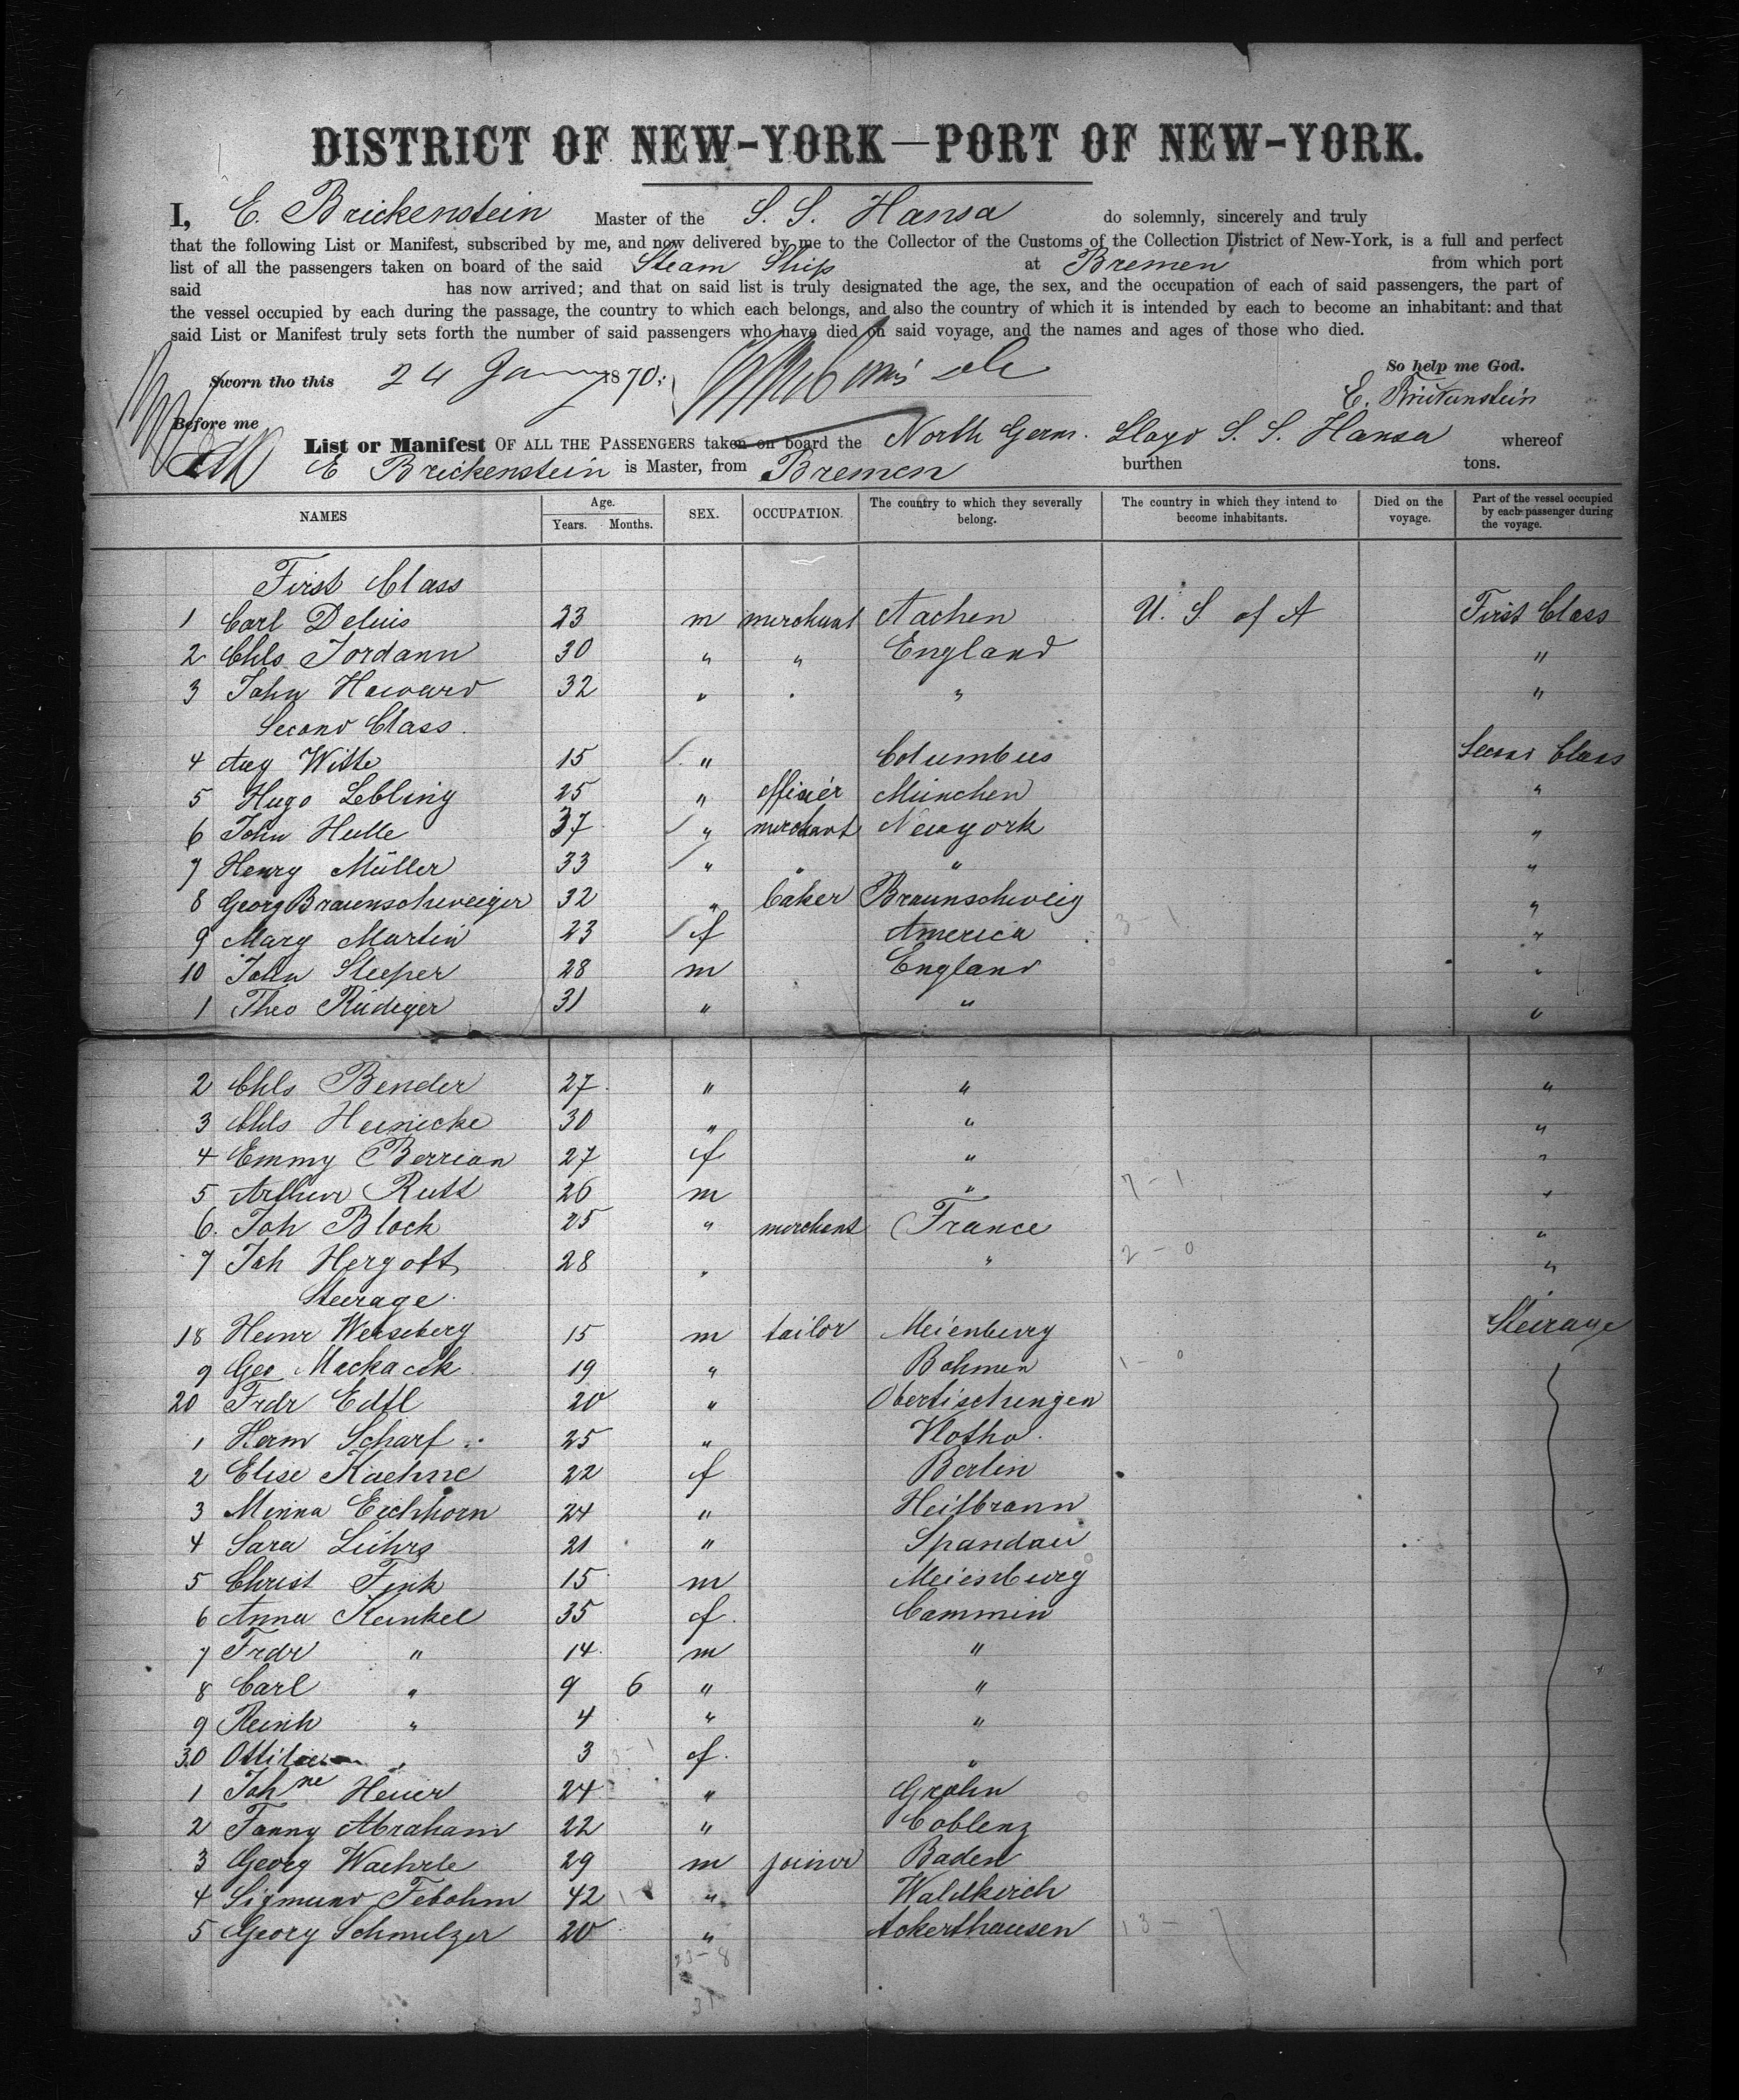 DISTRICT OF NEW-YORK—PORT OF NEW-YORK.
I, E. Brickenstein Master of the S. S. Hansa do solemnly, sincerely and truly
that the following List or Manifest, subscribed by me, and now delivered by me to the Collector of the Customs of the Collection District of New-York, is a full and perfect
list of all the passengers taken on board of the said Steam Ship at Bremen from which port
said has now arrived; and that on said list is truly designated the age, the sex, and the occupation of each of said passengers, the part of
the vessel occupied by each during the passage, the country to which each belongs, and also the country of which it is intended by each to become an inhabitant: and that
said List or Manifest truly sets forth the number of said passengers who have died on said voyage, and the names and ages of those who died.
So help me God.
Sworn tho this 24 Jany 1870.
E. Brickenstein
Before me
List or Manifest OF ALL THE PASSENGERS taken on board the North Germ. Lloyd S. S. Hansa whereof
E Brickenstein is Master, from Bremen burthen tons.
NAMES Age. Years. Months. SEX. OCCUPATION. The country to which they severally belong. The country in which they intend to become inhabitants. Died on the voyage. Part of the vessel occupied by each passenger during the voyage.
First Class
1 Carl Delius 23 m merchant Aachen U. S. of A First Class
2 Chls Jordann 30 " " England "
3 John Howard 32 " . " "
Second Class.
4 Aug Witte 15 " Columbus Second Class
5 Hugo Lebling 25 " Officiér München "
6 John Hulle 37 " merchant Newyork "
7 Henry Müller 33 " " " "
8 Georg Braunschweiger 32 " baker Braunschweig "
9 Mary Martin 23 f America 3-1 "
10 John Sleeper 28 m England "
1 Theo Rüdiger 31 " " "
2 Chls Bender 27 " " "
3 Chls Heinicke 30 " " "
4 Emmy Berrian 27 f " "
5 Arthur Rutt 26 m " 7-1 "
6. Joh Bloch 25 " merchant France "
7 Joh Hergott 28 " " 2-0 "
Steerage.
18 Heinr Werseberg 15 m tailor Meienburg Steirage
9 Geo Machacek 19 " Bohmen 1-0
20 Frdr Edtl 20 " Obertischungen
1 Herm Scharf 25 " Vlotho.
2 Elise Kaehne 22 f Berlin
3 Minna Eichhorn 24 " Heilbronn
4 Sara Lührs 21 " Spandau
5 Christ Fink 15 m Meienburg
6 Anna Keunkel 35 f. Cammin
7 Frdr " 14 m "
8 Carl " 9 6 " "
9 Reinh " 4 " "
30 Ottilie " 3 3-1 f. "
1 Johne Heuer 24 " Grohn
2 Fanny Abraham 22 " Coblenz
3 Georg Waehrle 29 m joiner Baden
4 Sigmund Febohm 42 " Waldkirch
5 Georg Schmelzer 20 " Ackerthausen 13-7
23-8
31